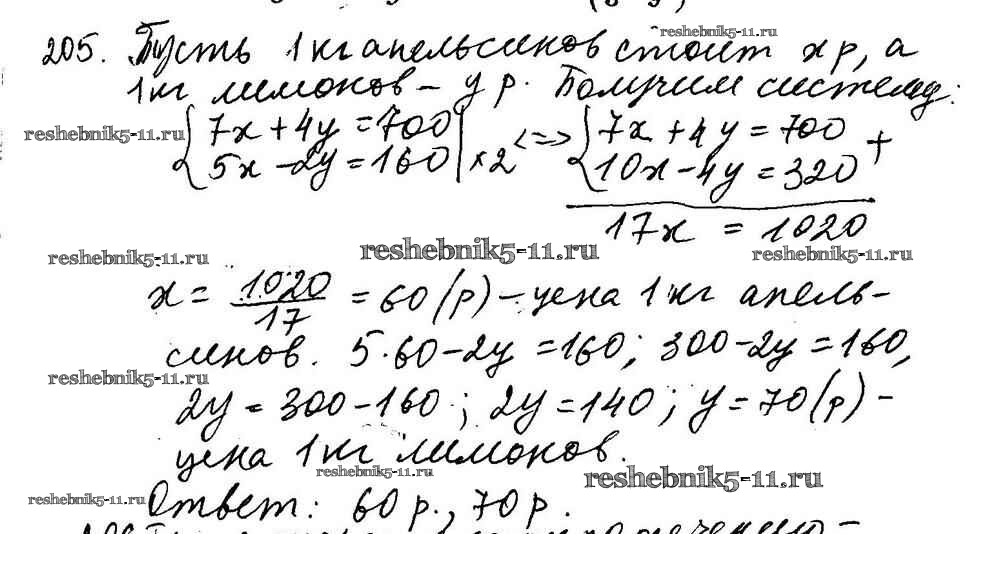 reshebnik5-11.ru
205. Пусть 1 кг апельсинов стоит x р, а
1 кг лимонов – y р. Получим систему:
reshebnik5-11.ru
{7x + 4y = 700 | <=> {7x + 4y = 700 +
{5x – 2y = 160 | × 2 {10x – 4y = 320
17x = 1020
reshebnik5-11.ru reshebnik5-11.ru reshebnik5-11.ru
x = 1020/17 = 60 (р) – цена 1 кг апель-
синов. 5·60 – 2y = 160; 300 – 2y = 160,
reshebnik5-11.ru
2y = 300 – 160; 2y = 140; y = 70 (р) –
цена 1 кг лимонов.
reshebnik5-11.ru reshebnik5-11.ru
reshebnik5-11.ru
Ответ: 60 р., 70 р.